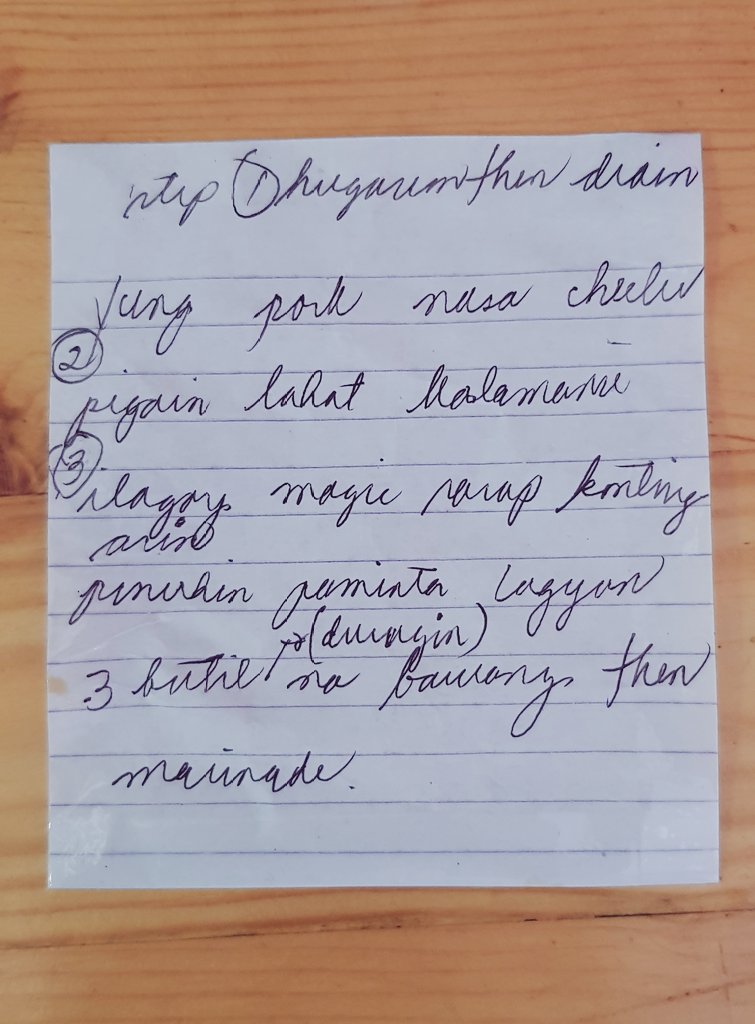 step ① hugasan then drain
yung pork nasa chiller
②
pigain lahat kalamansi
③
ilagay magic sarap konting
asin
pinuhin paminta lagyan
(durugin)
3 butil na bawang then
marinade.